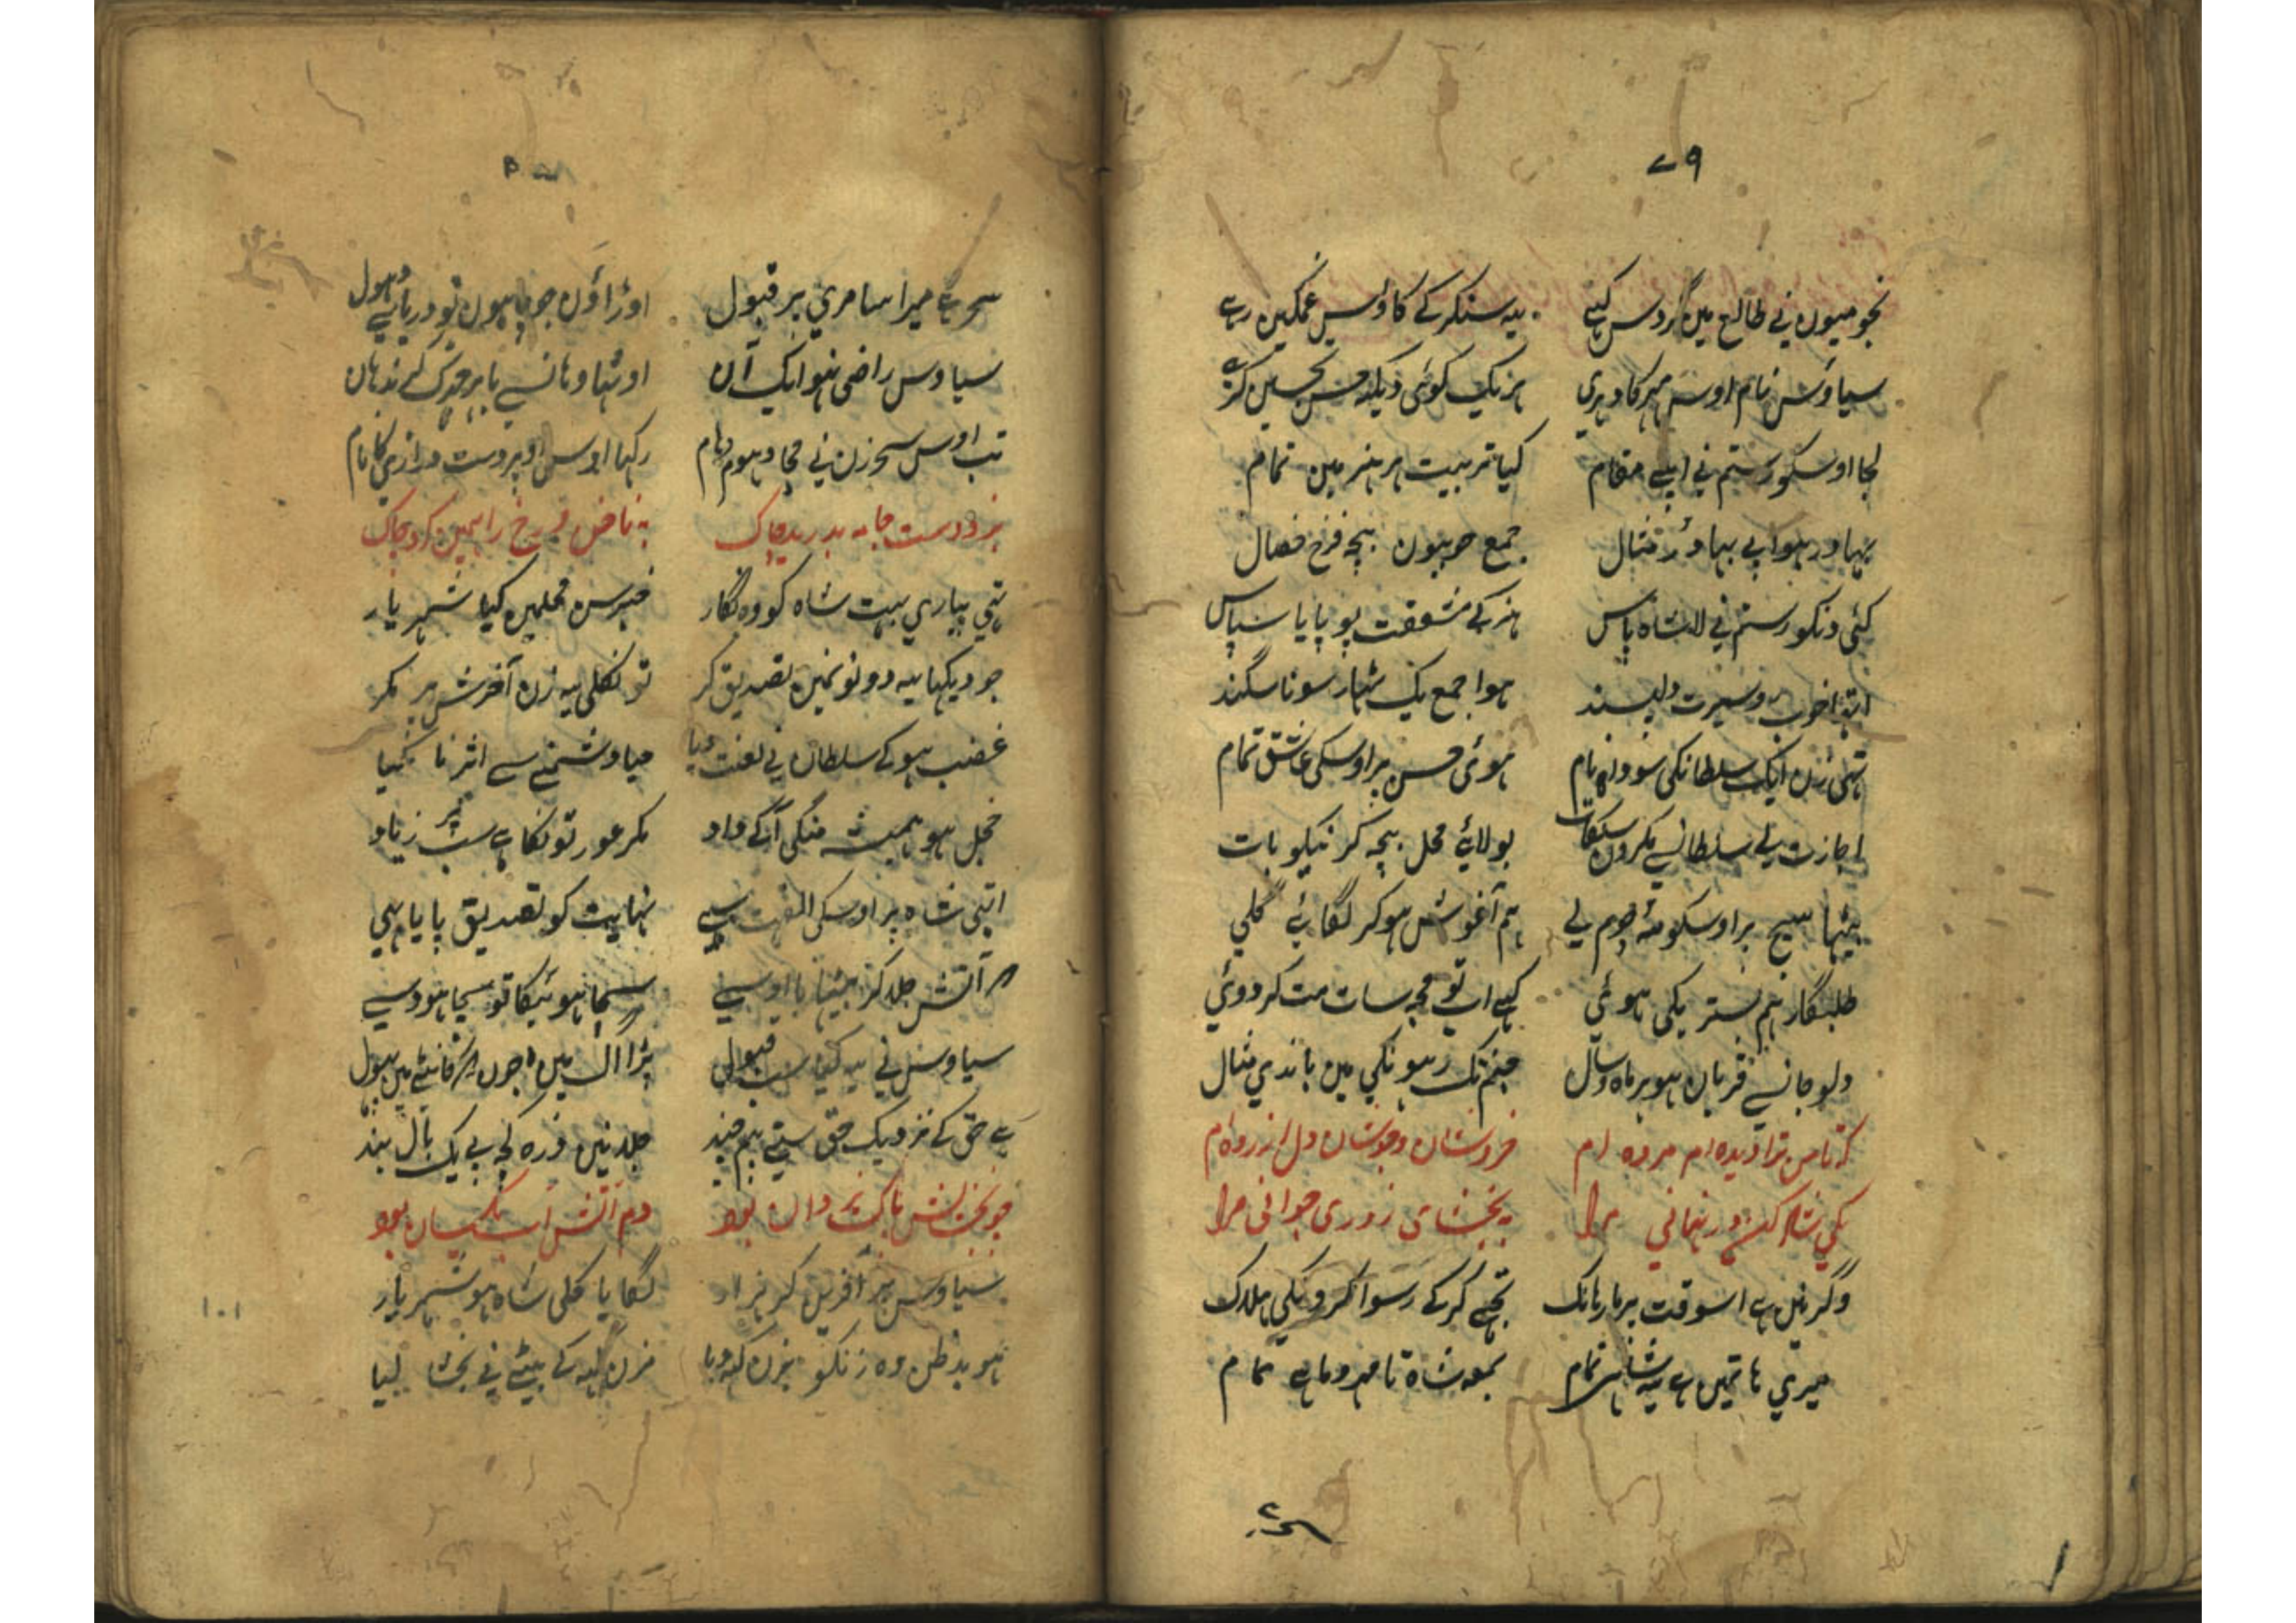 ۷۹
نجومیون نی طالع مین گردس کہے یہ سنکر کے کاوس غمگین رہے
سیاوش نام اوسم مہر کا دہری ہر یک کوئی دیکہہ تحسین کرے
لجا اوسکو رستم نی اپنے مقام کیا تربیت ہر ہنر مین تمام
بہادر ہوا بے بہادر مثال جمع خوبیون بیچہ فرخ فصال
کئی دنکو رستم نی لا شاہ پاس ہنر کے مشقت پو پایا سپاس
خوب رو سیرت دلپسند ہوا جمع یک شہار سونا سگند
تہی زن ایک سلطانکی سودابہ نام ہوئی حسن پر اوسکی عاشق تمام
اجازت لے سلطانسے مکرون سنگات بولائے محل بیچہ کر نیکو بات
بیٹہا سیج پر اوسکو منہ چوم لی ہم آغوش ہوکر لگائے گلی
طلبگار ہم بستر یکی ہوئی کہے اب تو مجہ سات مت کر دوئی
دلو جانسے قربان ہو ہر ماہ و سال جنم تک رہونگی مین باندی مثال
کہ تا من ترا دیدہ ام مردہ ام خروشان و جوشان دل ازردہ ام
یکی شاد کن در نہانی مرا ببخشای زوری جوانی مرا
وگر نین ہے اسوقت پر مار ہانک تجہے کر کے رسوا کرونگی ہلاک
میری ہاتہین ہے یہ شاہی تمام بمعہ شاہ تا مہر و ماہے تمام
سحر ہے
سحر ہے میرا سامری پر قبول اوڑاؤن جو چاہون تو دریا سے دہول
سیاوس راضی نہو ایک آن اوٹہا وہانسے باہر
تب اوس سحر زن نی مچا دہوم دہام رکہا اوس اوپر دست درازی کا نام
بزد دست جامہ بدرید چاک بہ ناخن دو رخ را ہمین کرد چاک
تہی پیاری بہت شاہ کو وہ نگار خبر سن محلمین گیا شہریار
جو دیکہا یہ دونو نمین تصدیق کر تو نکلی یہ زن آخرش پر مکر
غضب ہو کے سلطان نی لعنت دیا حیا و شنمنے سے اثر نا کیا
خجل ہو ہمیشہ منگی آ کے داد مکر عورتونکا ہے سب پر زیاد
اتہی شاہ پر اوسکی الفت سے نہایت کو تصدیق پایا یہی
آتش جلد کر سچا ہوئیگا تو سچا ہووے
سیاوش نی یہ کیا سب قبول پڑا اگ مین جون کانٹے مین پہول
ہے حق کے نزدیک حق ستے بہرہ مند جلد نین ذرہ کچہ بے یک بال بند
چو بخشایش پاک یزدان بود دم آتش آب یکسان بود
سیاوس پر آفرین کر ہزار لگایا گلی شاہ ہو شہریار
ہو بدظن وہ زنکو بزن کہہ دیا مزن کہہ کے بیٹے نی بخشا لیا
۱۰۱